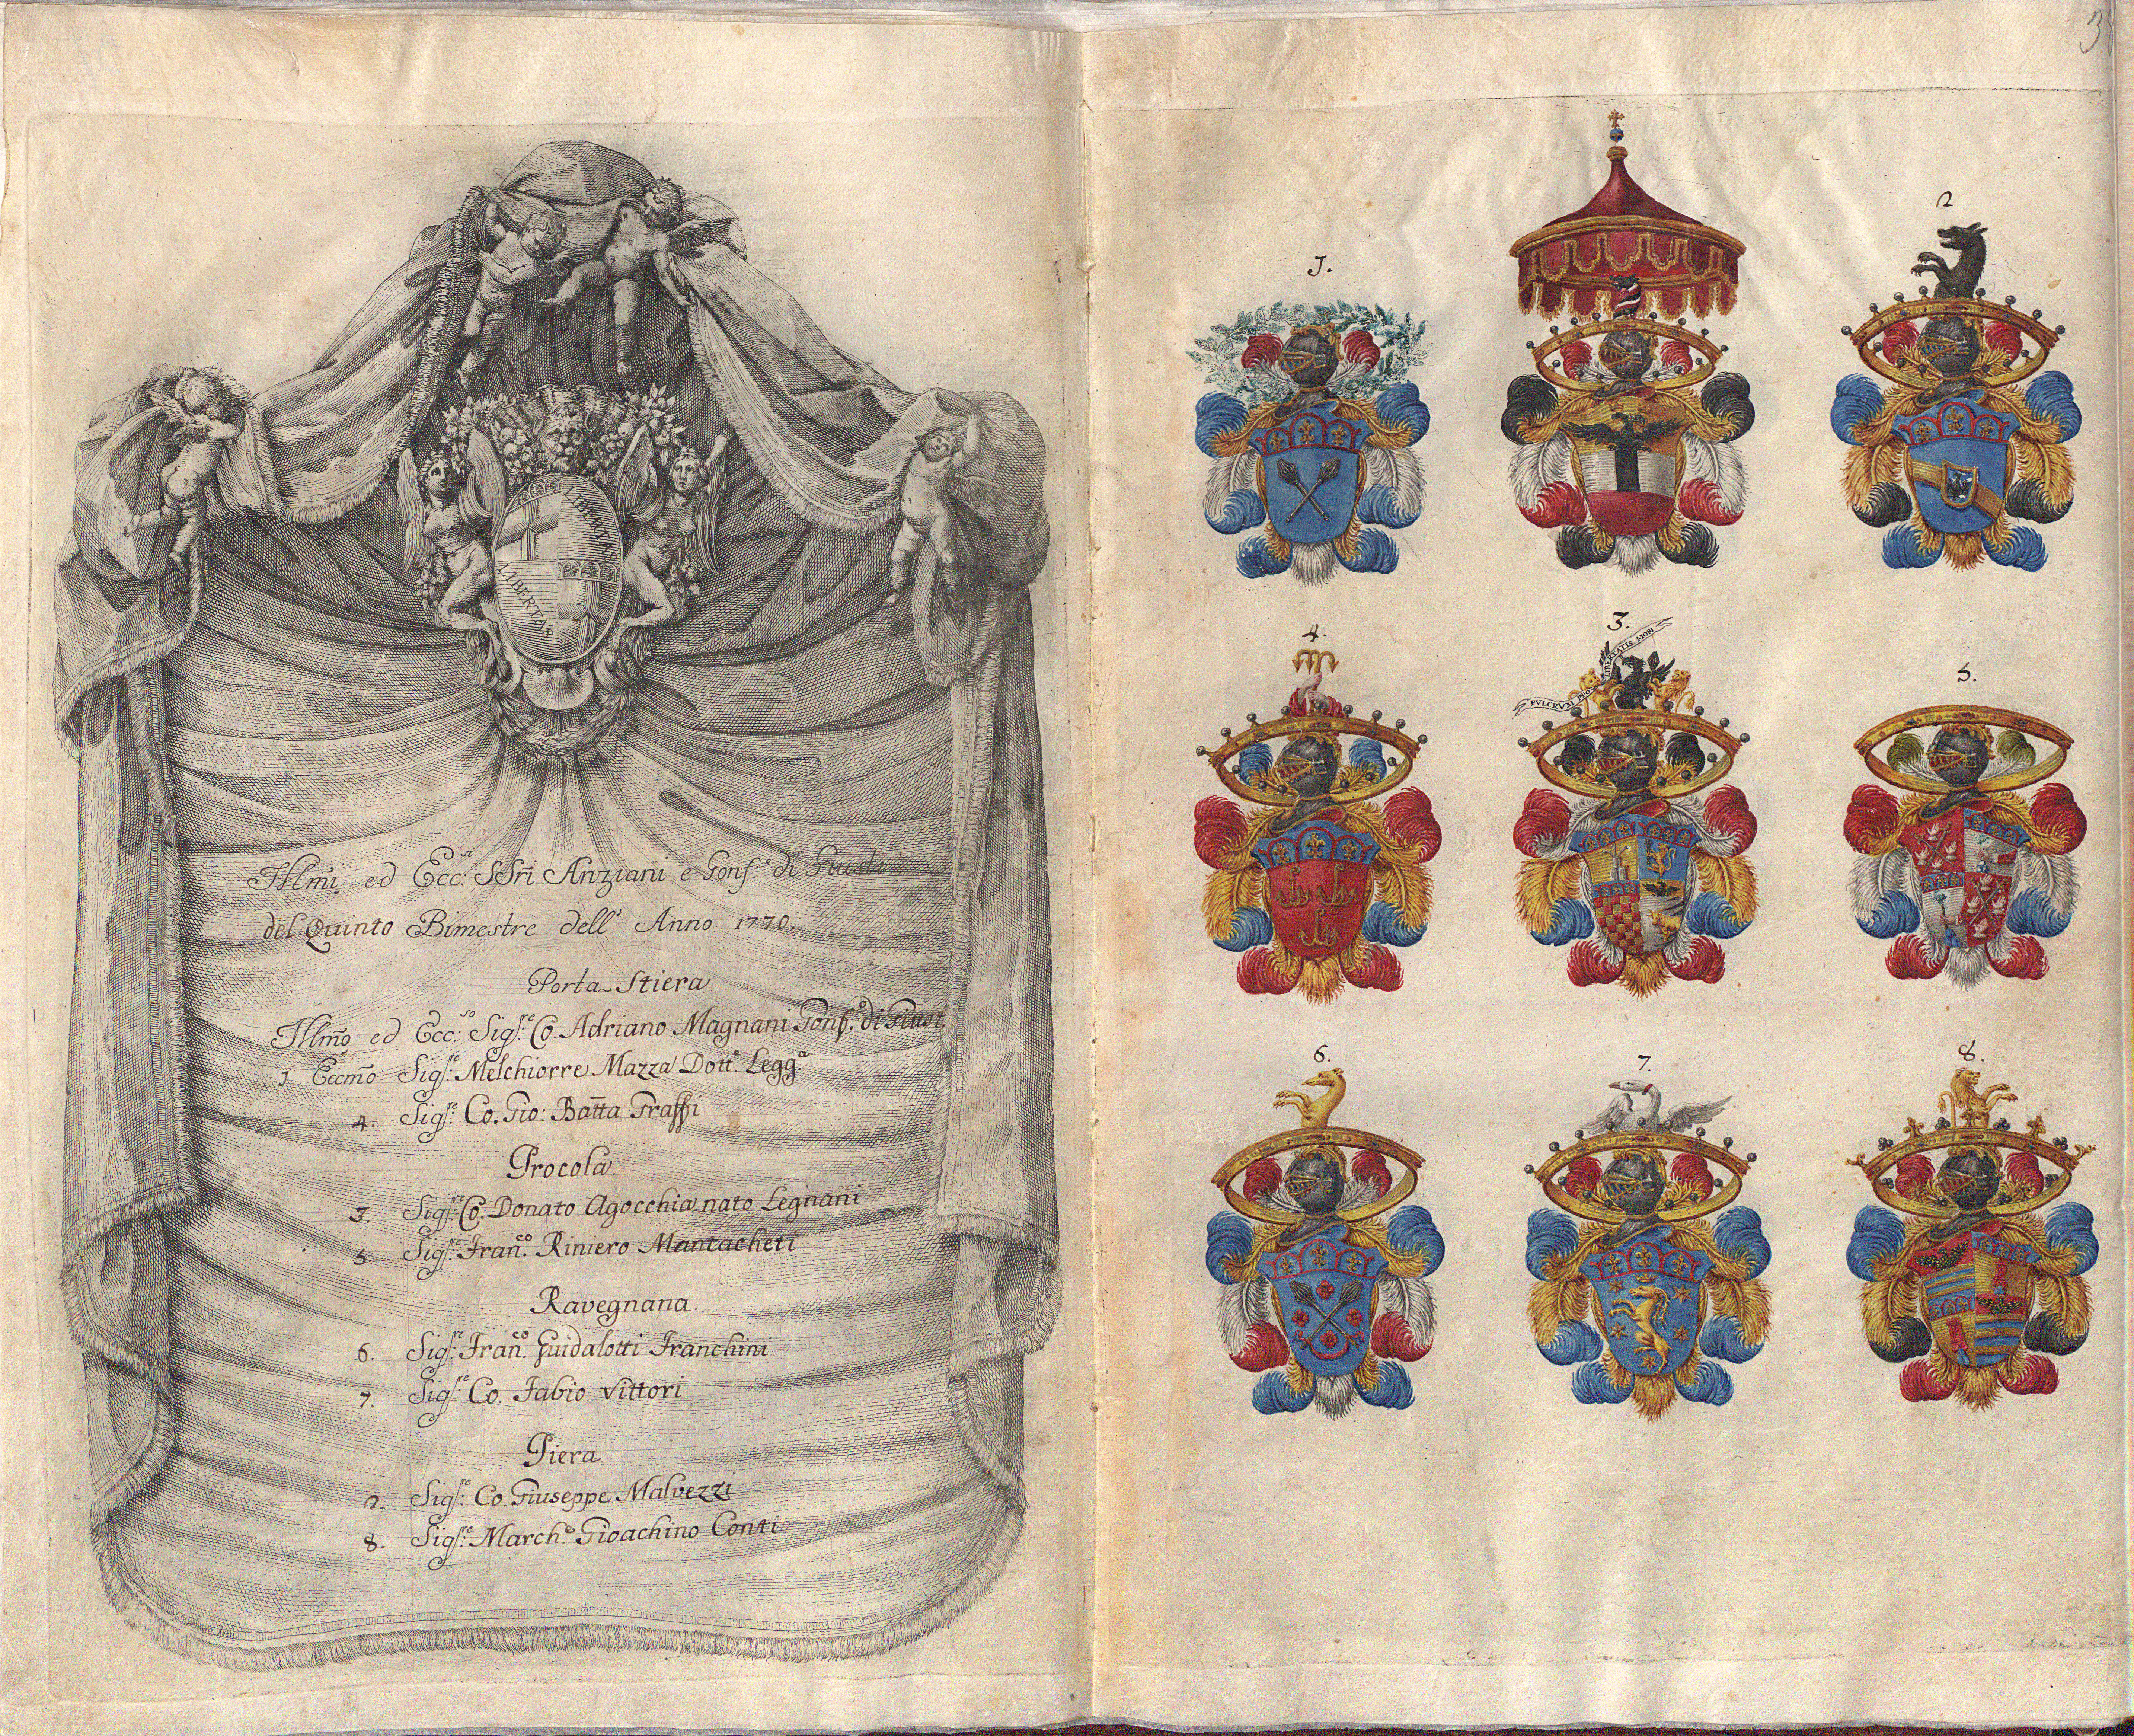 LIBERTAS
LIBERTAS
Illmi ed Ecc:si SSri Anziani e Gonf.e di Giusti
del Quinto Bimestre dell' Anno 1770.
Porta Stiera
Illmo ed Ecc:so Sigre: Co. Adriano Magnani Gonf.o di Giust
1. Eccmo Sigre: Melchiorre Mazza Dott.e Legg.a
4. Sigre: Co. Gio: Batta Graffi
Procola
3. Sigre: Co. Donato Agocchia nato Legnani
5. Sigre: Fran.co Riniero Mantacheti
Ravegnana.
6. Sigre: Fran.co Guidalotti Franchini
7. Sigre: Co. Fabio Vittori
Piera
2. Sigre: Co. Giuseppe Malvezzi
8. Sigre: March.e Gioachino Conti
1.
2
4.
3.
FULCRUM PRO LIBERTATIS MORI
5.
6.
7.
8.